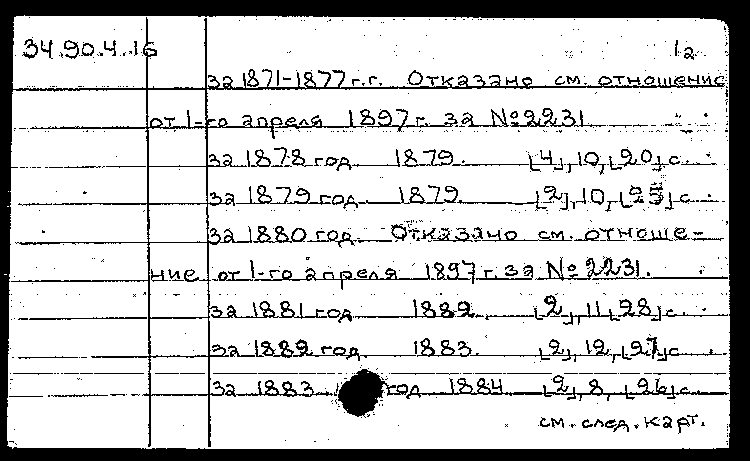 34.90.4.16 1а
за 1871-1877 г.г. Отказано см. отношение
от 1-го апреля 1897 г. за № 2231
за 1878 год 1879. [4], 10, [20] с.
за 1879 год. 1879. [2], 10, [25] с.
за 1880 год. Отказано см. отноше-
ние от 1-го апреля 1897 г. за № 2231.
за 1881 год 1882. [2], 11, [28] с.
за 1882 год. 1883. [2], 12, [27] с.
за 1883 год 1884 [2], 8, [26] с.
см. след. карт.